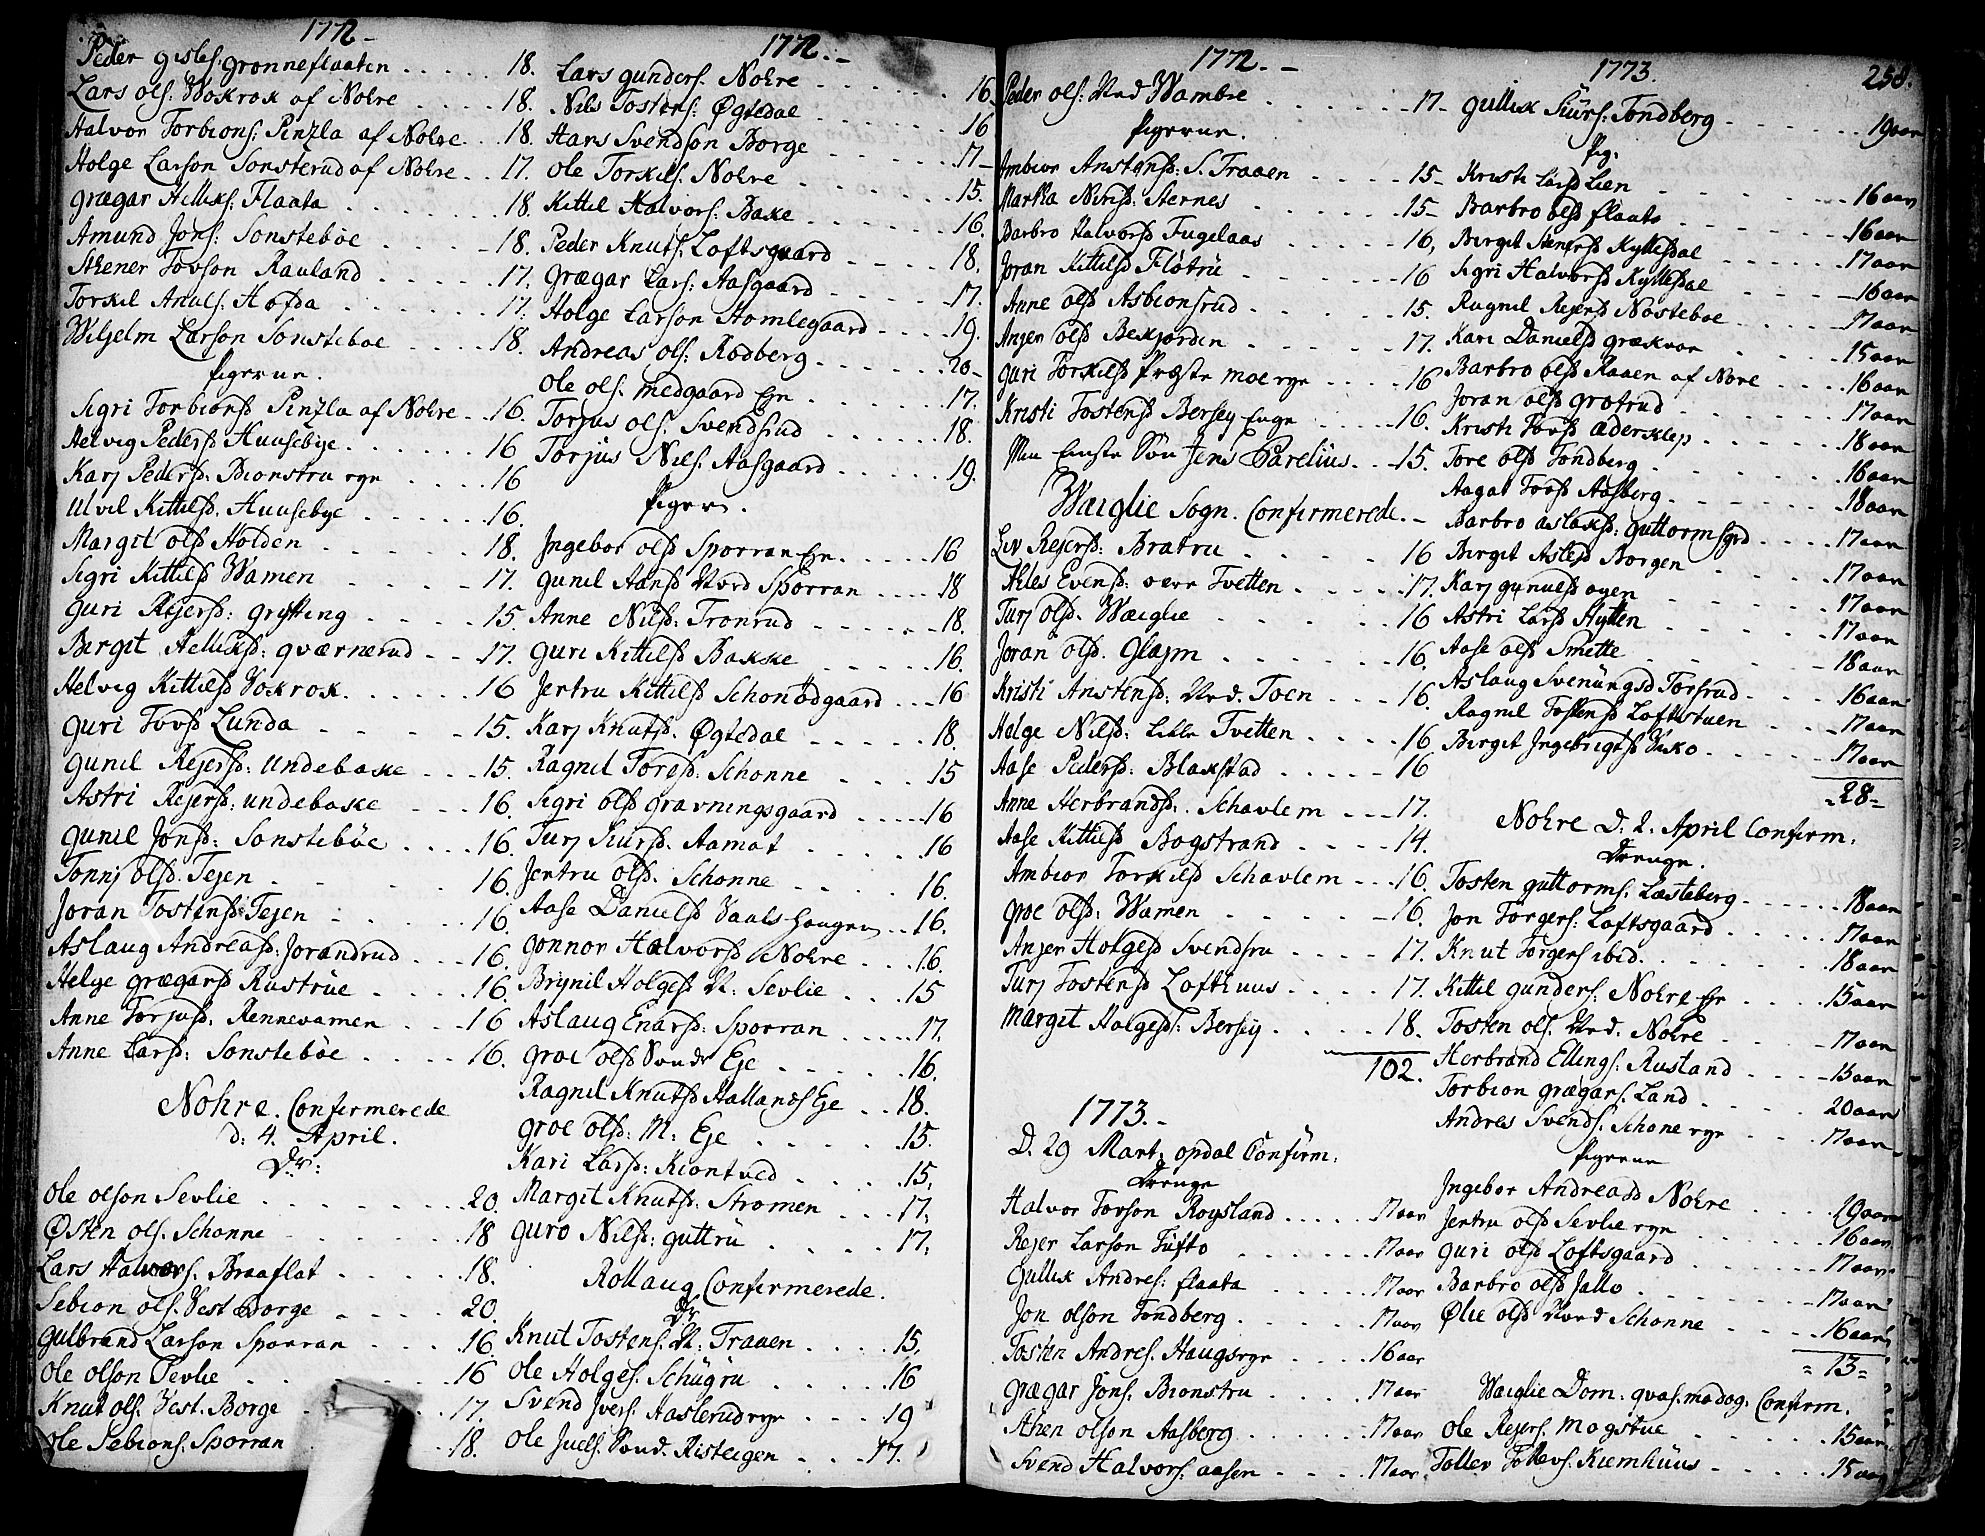 1772 -
Peder Gisles: Grønneflaaten . . . . . 18.
Lars Ols: Wokrok af Nohre . . . . 18.
Halvor Torbions: Penzla af Nohre . . . 18
Holge Larson Sonsterud af Nohre . . 17.
Grægar Helliks: Flaata . . . . . . . 18.
Amund Jons: Sonstebøe . . . . . 18.
Sthener Tovson Rauland . . . . . 17.
Torkil Andls: Hofda . . . . . . 17.
Wilhelm Larson Sonsteboe . . . . 18.
Pigerne.
Sigri Torbionsd Penzla af Nohre . . 16.
Helvig Pedersd Huusebye . . . . . 16
Karj Pedersd: Bionstru eye . . . . . 16
Ulvil Kittilsd. Huusebye . . . . . 16.
Margit Olsd Holden . . . . . . 18.
Sigri Kittilsd Wamen . . . . . 17.
Guri Rejersd: Grytting . . . . . 15.
Birgit Helliksd: Qværnerud . . 17.
Helvig Kittilsd Vokrok . . . . . . 16
Guri Tovsd Lunda . . . . . . 15.
Gunil Rejersd: Undebakke . . . 15.
Astri Rejersd: Undebakke . . . 16.
Gunil Jonsd: Sonstebøe . . . . 16.
Tonnj Olsd. Tejen . . . . . . 16.
Joran Tostensd: Tejen . . . . . 16.
Aslaug Andreasd: Jorandrud . . . 16.
Helge Grægarsd Rustrüe . . . . 16.
Anne Torjusd. Rennevamen . . . 16
Anne Larsd: Sonstebøe . . . . 16.
Nohre. Confirmerede
d: 4. April.
Dr:
Ole Olson Sevlie . . . . . . . . 20.
Østen Ols. Schonne . . . . . . 18
Lars Halvors. Braaflat . . . . . 18.
Sebion Ols. Vest Borge . . . . . 20.
Gulbrand Larson Sporran . . . . 16.
Ole Olson Sevlie . . . . . . . 16
Knut Ols. Vest. Borge . . . . . 17.
Ole Sebions. Sporran . . . . . 18.
1772. -
Lars Gunders. Nohre . . . . . . . 16.
Nils Tostens: Øgtedal . . . . . . 16
Hans Svendson Borge . . . . . . 17 -
Ole Torkils. Nohre . . . . . . 15.
Kittil Halvors: Bake . . . . . . 16.
Peder Knuts: Loftsgaard . . . . . 18.
Grægar Lars: Aasgaard . . . . . 17.
Holge Larson Homlegaard . . . . 19.
Andreas Ols: Rødberg . . . . . . 20 -
Ole Ols. Medgaard Eye . . . . . . 17.
Torjus Ols. Svendsrud . . . . . . 18.
Torjüs Nils: Aasgaard . . . . . 19.
Piger.
Ingebor Olsd Sporran Eye . . . . . 16
Gunil Aansd Nord Sporran . . . . 18
Anne Nilsd: Tronrud . . . . . . 18.
Guri Kittilsd Bakke . . . . . . 16.
Jertru Kittilsd Schonødgaard . . . 16
Karj Knutsd. Øgtedal . . . . . 18.
Ragnil Toresd: Schonne . . . . 15
Sigri Olsd Gravningsgaard . . . . . 16
Turj Siursd. Aamot . . . . . 16
Jertru Olsd. Schonne . . . . . 16.
Aase Danielsd Vaalshougen . . 16.
Gonnor Halvorsd Nohre . . . 16.
Brynil Holgesd N: Sevlie . . . 15
Aslaug Enarsd: Sporran . . . . . 17.
Groe Olsd Søndr Eje . . . . . . 16.
Ragnil Knutsd Hallands Eje . . 18.
Groe Olsd: M: Eje . . . . . 15.
Kari Larsd: Kiontved . . . . 15.
Margit Knutsd: Strømen . . . 17.
Guro Nilsd: Guttrü . . . . . 17.
Rollaug Confirmerede.
Dr
Knut Tostens. N: Traaen . . . . . 15.
Ole Holges. Schügrü . . . . . . 16
Svend Ivers. Haslerud eye . . . . 19
Ole Juels. Sønd. Risteigen . . . 17.
1772. -
Peder Ols: Nød Wambre . . . . 17 -
Pigerne.
Ambior Anstensd: S. Traaen . . . . 15 -
Martha Nirisd: Sternes . . . . . 15 -
Barbro Halvorsd Fugelaas . . . . . 16,
Joran Kittilsd Fløtrü . . . . . 16
Anne Olsd Asbionsrud . . . . . 15.
Anjer Olsd Bekjorden . . . . . 17.
Guri Torkilsd Præste moe eye . . . . 16
Kristi Tostensd Bersey Enge . . . 16.
Min Eneste Søn Jens Parelius . . . 15.
Wæiglie Sogn. Confirmerede. -
Liv Rejersd: Bratru . . . . . 16
Ahles Evensd: over Tvetten . . . . . 17.
Turj Olsd. Wæiglie . . . . . 16
Joran Olsd. Glajm . . . . . . 16.
Kristi Anstensd: Nød. Toen . . . . 16.
Helge Nilsd: Lille Tvetten . . . . 16
Aase Pedersd: Blakstad . . . . . 16
Anne Herbrandsd: Schavlem . . . 17.
Aase Kittilsd Bogstrand . . . . 14.
Ambior Torkilsd Schavlem . . . 16.
Groe Olsd: Wamen . . . . . . 16.
Anjer Holgesd Svendsru . . . . 17.
Turj Tostensd Lofthuus . . . . 17.
Margit Holgesd: Bersey . . . . . 18.
102.
1773. -
D. 29 Mart: Opdal Confirm.
Drenge
Halvor Tovson Roysland . . . . . 17 aar
Rejer Larson Tüfto . . . . . 17 aar
Gullik Andres: Flaata . . . . . 17 aar
Jon Olson Tondberg . . . . . 17 aar
Tosten Andres. Haugs eye . . . . 16 aar
Grægar Jons. Bionstru . . . . 17 aar
Sthen Olson Aasberg . . . . . 17 aar
Svend Halvors. Aasen . . . . 17 aar
1773.
258.
Gullik Siürs: Tondberg . . . . . . 19 aar
Pig.
Kristi Larsd Lien . . . . . . . 16 aar
Barbro Olsd Flaata . . . . . . 16 aar
Birgit Stenersd Kyllesdal . . . . . 17 aar
Sigri Halvorsd Kyllesdal . . . . 16 aar
Ragnil Rejersd Nøsteboe . . . . 17 aar
Kari Danielsd Grækvoe . . . . . 15 aar
Barbro Olsd Raaen af Nore . . . . 16 aar
Joran Olsd Grøtrud . . . . . . 17 aar
Kristi Tovsd Æderklep . . . . . 18 aar
Tore Olsd Tondberg . . . . . . 16 aar
Aagat Tovsd Aasberg . . . . . . 18 aar
Barbro Aslaksd: Guttormsgrd . . . . 17 aar
Birgit Aslesd Borgen . . . . . 17 aar
Karj Gunulsd Øyen . . . . . . 17 aar
Astri Larsd Hytten . . . . . . 17 aar
Aase Olsd Smette . . . . . . 18 aar
Aslaug Svenüngsd Torsrud . . . 16 aar
Ragnil Tostensd Loftstuen . . . 17 aar
Birgit Ingebrigtsd Vako . . . . 17 aar
- 28 -
Nohre D. 2. April Confirm.
Drenge.
Tosten Guttorms: Læsteberg . . . . 18 aar
Jon Torgers: Loftsgaard . . . . . 17 aar
Knut Torgers ibid. . . . . . . 18 aar
Kittil Gunders: Nohre Eye . . . . 15 aar
Tosten Ols. Nrd. Nohre . . . . . 17 aar
Herbrand Ellings: Rustand . . . . 15 aar
Torbion Grægars. Land . . . . . 20 aar
Andres Svends. Schone eye . . . 17 aar
Pigerne
Ingebor Andreasd Nohre . . . . 19 aar
Jertru Olsd Sevlie eye . . . . 16 aar
Guri Olsd Loftsgaard . . . . . 17 aar
Barbro Olsd Jallo . . . . . . 17 aar
Ølie Olsd Nord Schonne . . . . 16 aar
- 13 -
Wæiglie Dom: qvasimodog. Confirm.
Ole Rejers. Mogstue . . . . . . 15 aar
Tollev Tollevs. Kiemhüus . . . . 15 aar